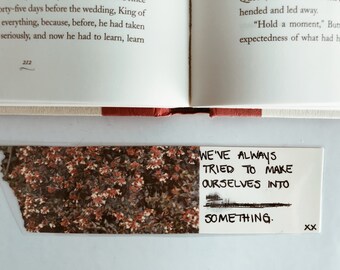 Prince
forty-five days before the wedding, King of
everything, because, before, he had taken
seriously, and now he had to learn, learn
222
hended and led away.
"Hold a moment,"
expectedness of what had h
WE'VE ALWAYS
TRIED TO MAKE
OURSELVES INTO
SOMETHING.
xx